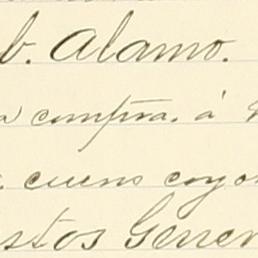 b. Alamo.
a compra. á
cueno coyo
stos Gener